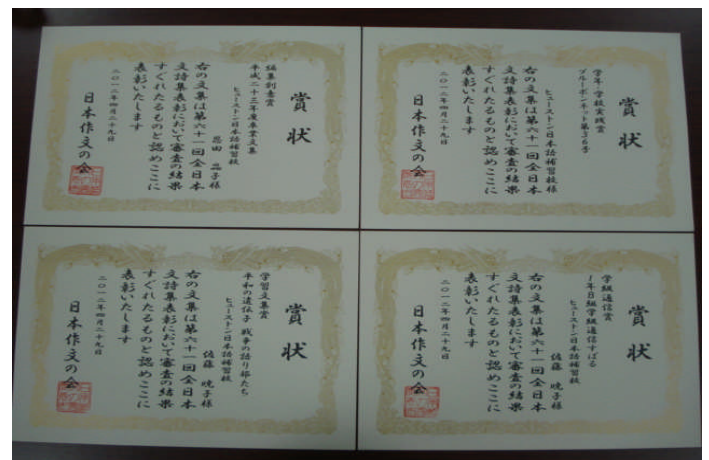 賞状
編集創意賞
平成二十三年度卒業文集
ヒューストン日本語補習校
恩田 晶子様
右の文集は第六十一回全日本
文詩集表彰において審査の結果
すぐれたるものと認めここに
表彰いたします
二〇一二年四月二十九日
日本作文の会
賞状
学年・学校実践賞
ブルーボンネット第36号
ヒューストン日本語補習校様
右の文集は第六十一回全日本
文詩集表彰において審査の結果
すぐれたるものと認めここに
表彰いたします
二〇一二年四月二十九日
日本作文の会
賞状
学習文集賞
平和の遺伝子 戦争の語り部たち
ヒューストン日本語補習校
佐藤 暁子様
右の文集は第六十一回全日本
文詩集表彰において審査の結果
すぐれたるものと認めここに
表彰いたします
二〇一二年四月二十九日
日本作文の会
賞状
学級通信賞
1年B組学級通信すばる
ヒューストン日本語補習校
佐藤 暁子様
右の文集は第六十一回全日本
文詩集表彰において審査の結果
すぐれたるものと認めここに
表彰いたします
二〇一二年四月二十九日
日本作文の会